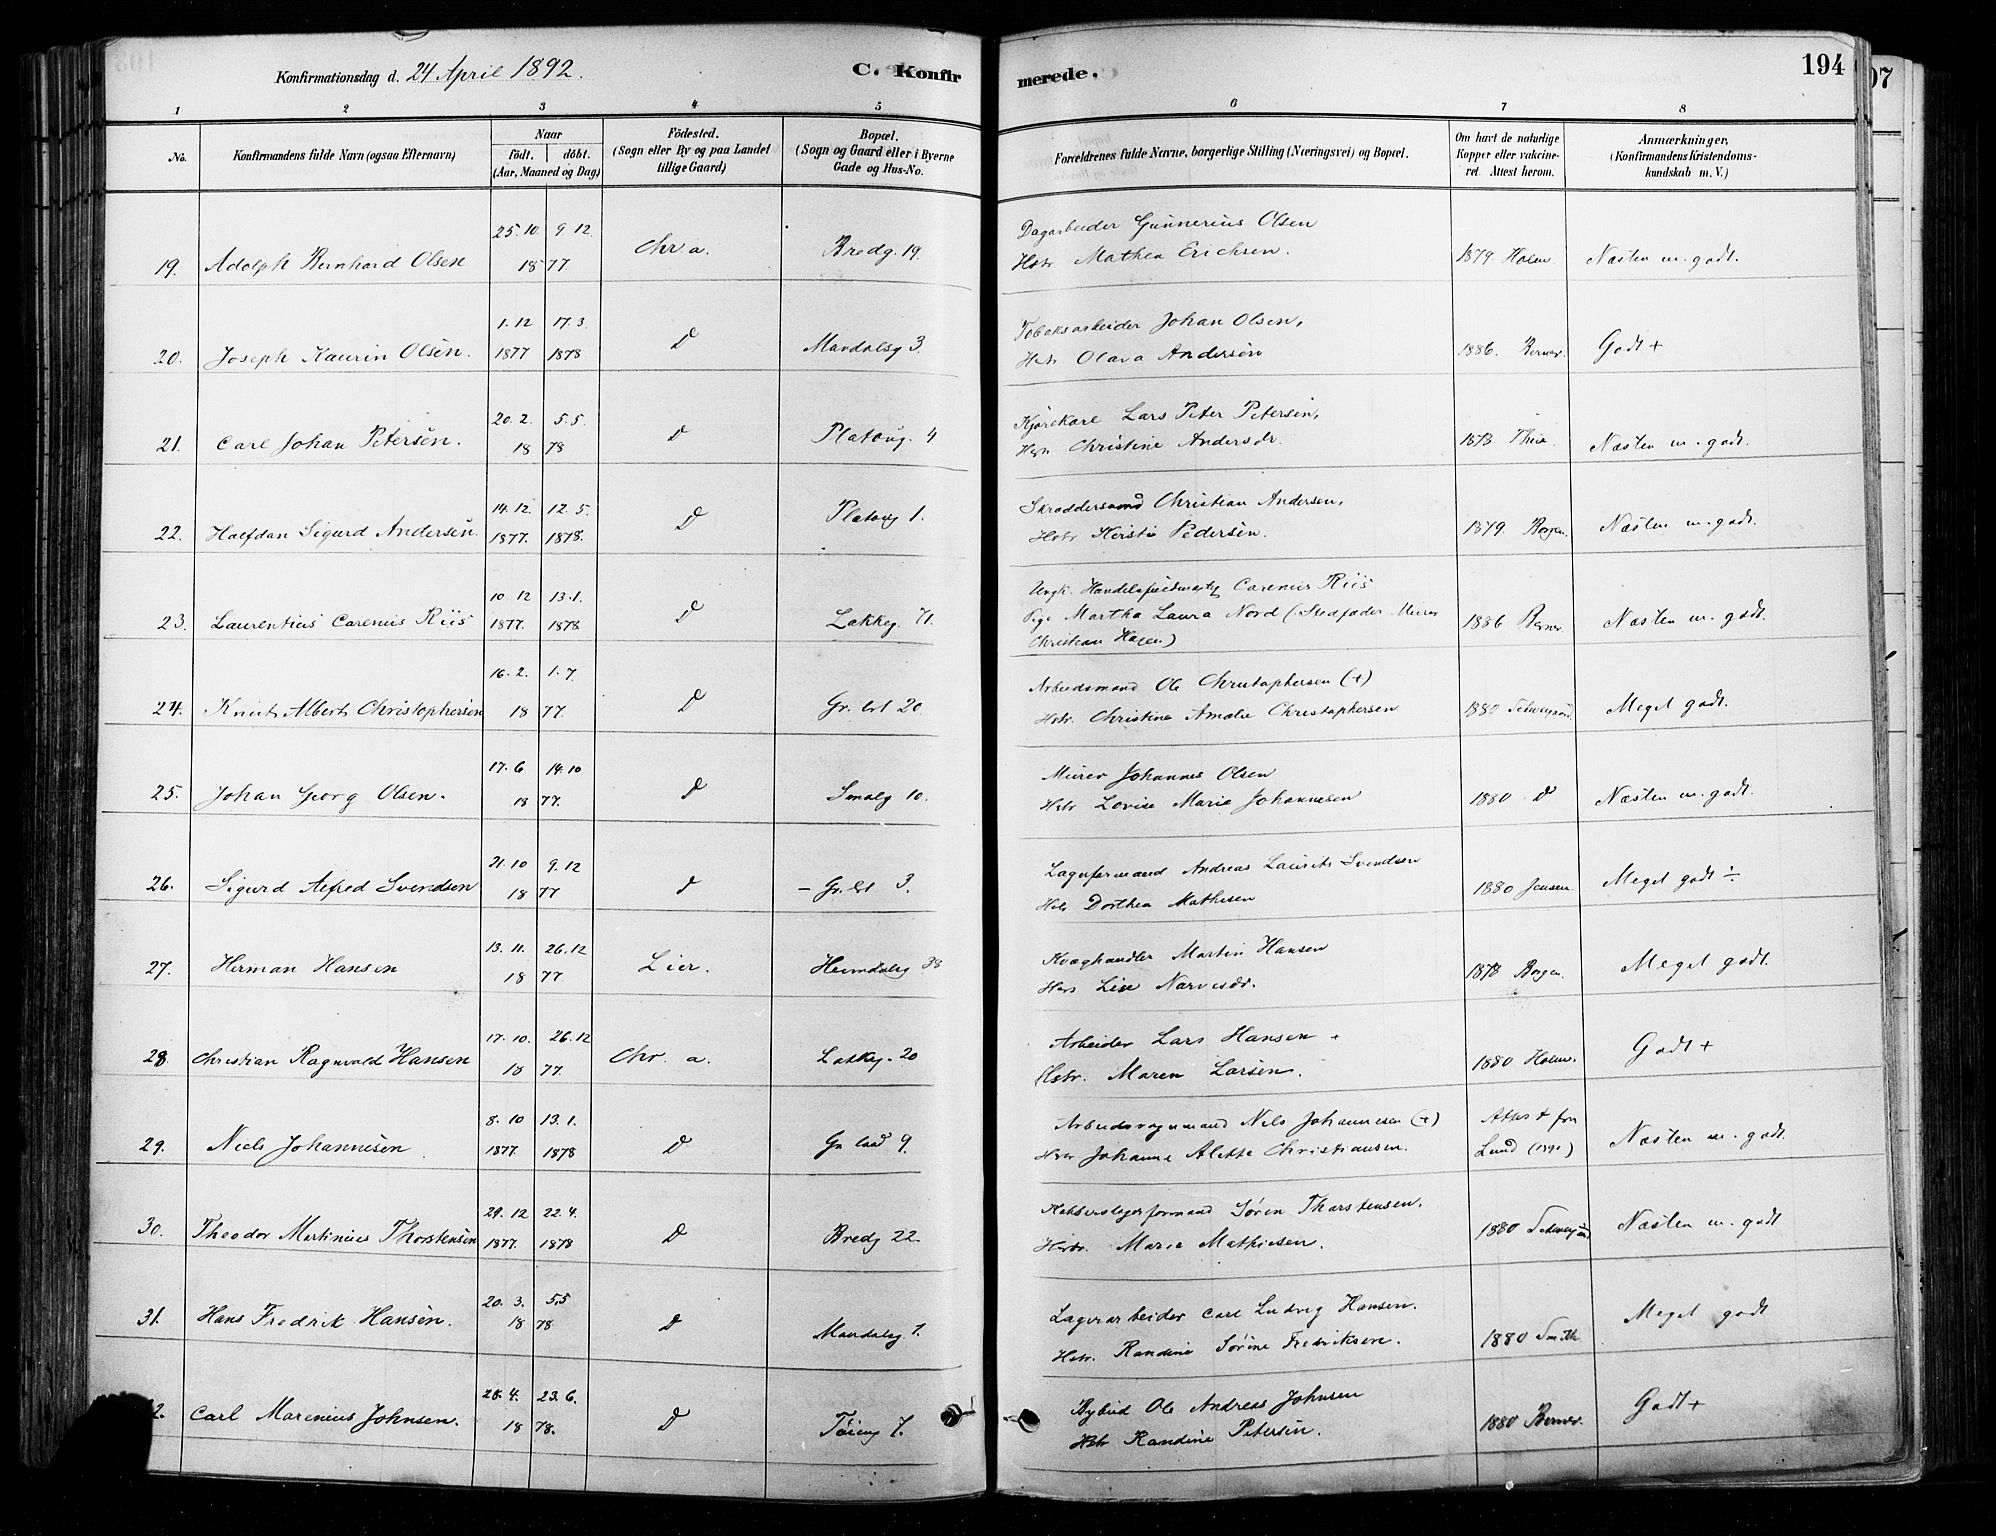 Konfirmationsdag d. 24 April 1892.
C. Konfirmerede.
194
1 2 3 4 5 6 7 8
No.
Konfirmandens fulde Navn (ogsaa Efternavn)
Naar
födt. döbt.
(Aar, Maaned og Dag)
Födested.
(Sogn eller By og paa Landet
tillige Gaard)
Bopæl.
(Sogn og Gaard eller i Byerne
Gade og Hus-No.
Forældrenes fulde Navne, borgerlige Stilling (Næringsvei) og Bopæl.
Om havt de naturlige
Kopper eller vakcine-
ret. Attest herom.
Anmærkninger,
(Konfirmandens Kristendoms-
kundskab m. V.)
19. Adolph Bernhard Olsen 25.10. 9.12. 18 77. Chr.a. Bredg. 19. Dagarbeider Gunnerius Olsen
Hstr. Mathea Erichsen. 1879. Holm. Næsten m. godt.
20. Joseph Kaurin Olsen. 1.12 1877 17.3. 1878 D Mandalsg 3. Tobaksarbeider Johan Olsen,
Hstr Olava Andersen 1886. Berner. Godt +
21. Carl Johan Petersen. 20.2. 5.5. 18 78 D Platoug. 4 Kjørekarl Lars Peter Petersen,
Hstr Christine Andersdr. 1878 Næsten m. godt.
22. Halfdan Sigurd Andersen. 14.12. 1877. 12.5. 1878. D Platoug 1. Skræddersvend Christian Andersen,
Hstr Kirstie Pedersen. 1879. Borgen. Næsten m. godt.
23. Laurentius Carenius Riis 10.12 1877. 13.1. 1878 D Lakkeg. 71. Ungk. Carenius Riis
Pige Martha Laura Nord (Stedfader Murer
Christian Hagen) 1886 Berner. Næsten m. godt.
24. Knut Albert Christophersen 16.2. 1.7. 18 77. D Gr. 20. Arbeidsmand Ole Christophersen (+)
Hstr. Christine Amalie Christophersen 1880 Meget godt.
25. Johan Georg Olsen. 17.6 14.10 18 77. D Smalg 10. Murer Johannes Olsen
Hstr Lovise Marie Johannesen 1880 D Næsten m. godt.
26. Sigurd Alfred Svendsen 21.10 9.12 18 77 D – Gr. 3. Lagerformand Andreas Laurits Svendsen
Hstr Dorthea Mathisen 1880 Jensen. Meget godt ÷
27. Herman Hansen 13.11. 26.12 18 77. Lier. Heimdalsg 38 Kvæghandler Martin Hansen
Hstr Lise Narvesdr. 1878 Borgen. Meget godt.
28 Christian Ragnvald Hansen 17.10. 26.12 18 77. Chr. a. Lakkg. 20 Arbeider Lars Hansen +
Hstr. Maren Larsen. 1880 Holm. Godt +
29. Niels Johannesen 8.10 1877. 13.1. 1878 D 9. Nils Johannesen (+)
Hstr Johanne Alette Christiansen. Attest fra
Lund Næsten m. godt.
30. Theodor Martinius Thorstensen 29.12 1877. 22.4. 1878 D Bredg 22. Kobberslagerformand Sören Thorstensen,
Hstr. Marie Mathiesen. 1880 Næsten m. godt
31. Hans Fredrik Hansen. 20.3. 5.5 18 78 D Mandalsg 7. Lagerarbeider Carl Ludvig Hansen.
Hstr. Randine Sørine Fredriksen. 1880 Smith Meget godt
2. Carl Marenius Johnsen. 28.4. 23.6. 18 78. D Tøieng 7. Bybud Ole Andreas Johnsen
Hstr Randine Petersen. 1880 Berner. Godt +